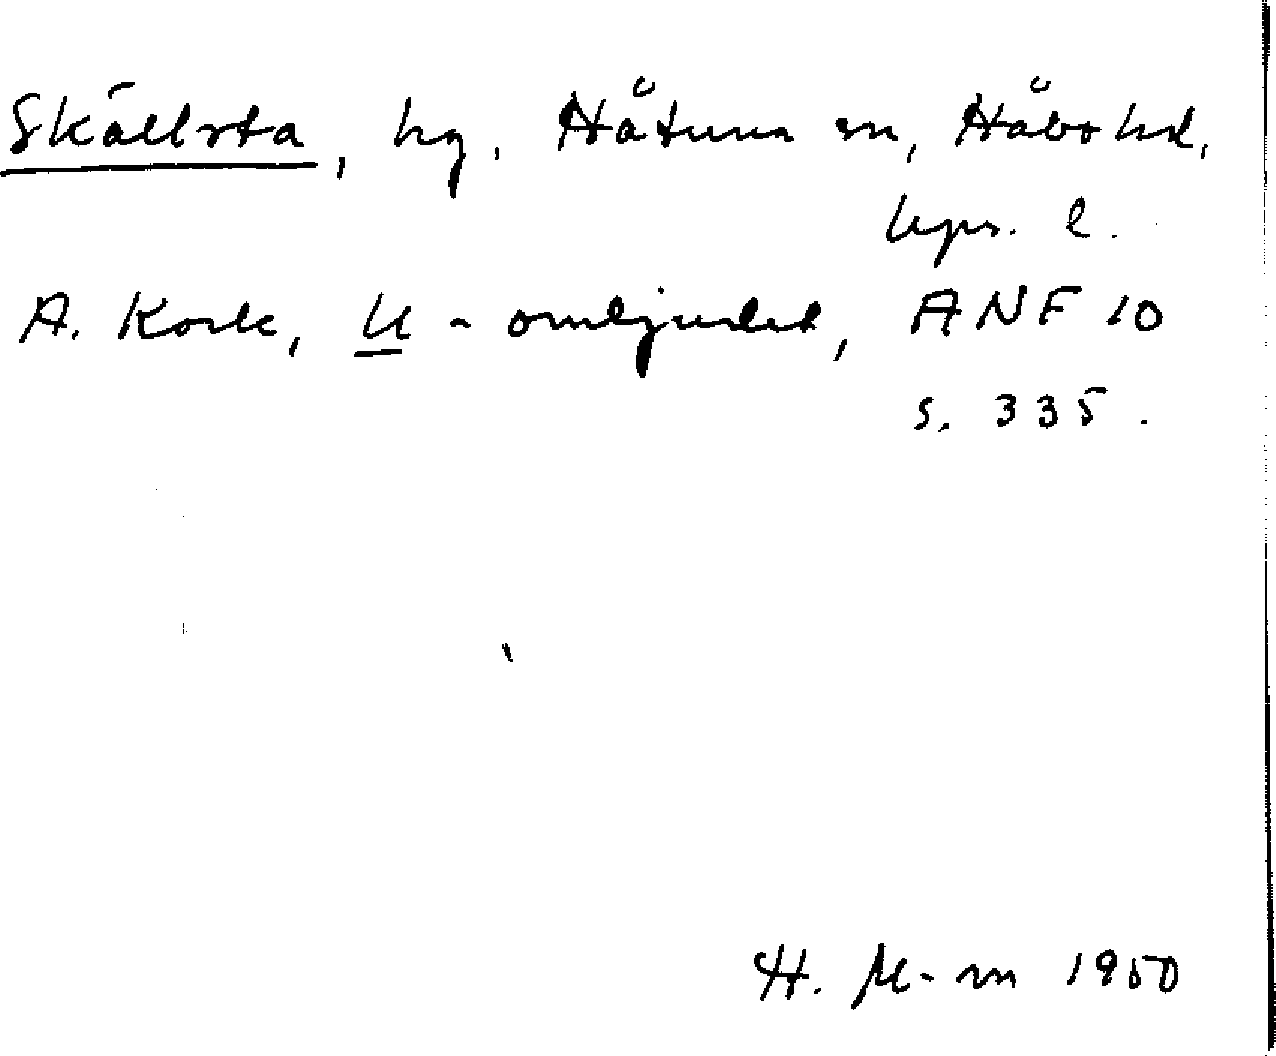 Skällsta, hg, Håtuna sn, Håbo hd,
Upps. l.
A. Kock, U-omljudet, ANF 10
s. 335.
H. M-m 1950